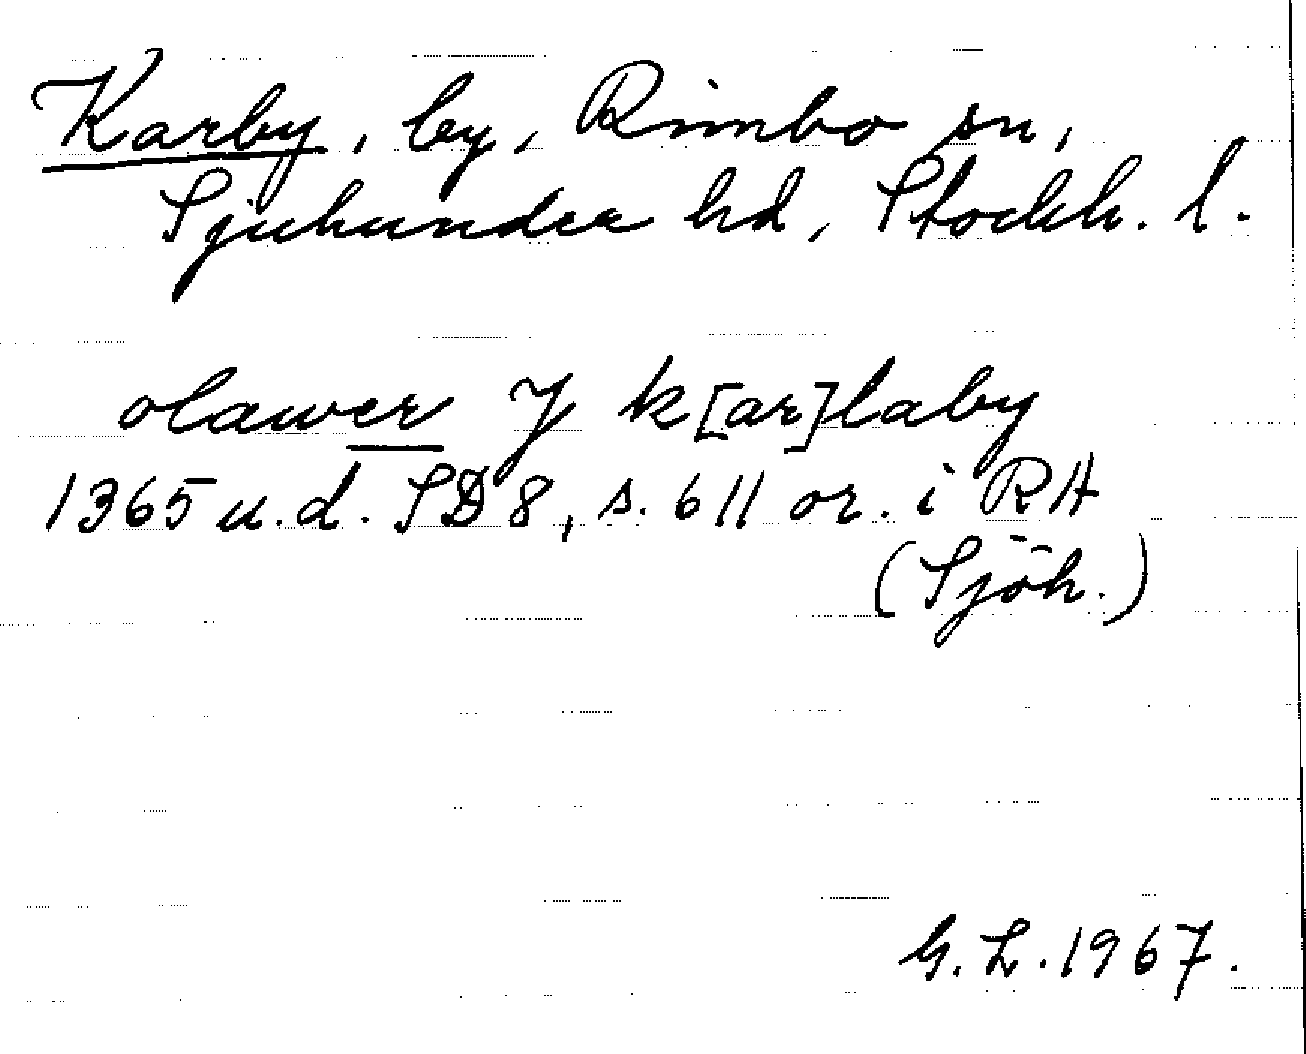 Karby, by, Rimbo sn,
Sjuhundra hd, Stockh. l.
olawer J k[ar]laby
1365 u.d. SD 8, s. 611 or. i RA
(Sjöh.)
G. L. 1967.